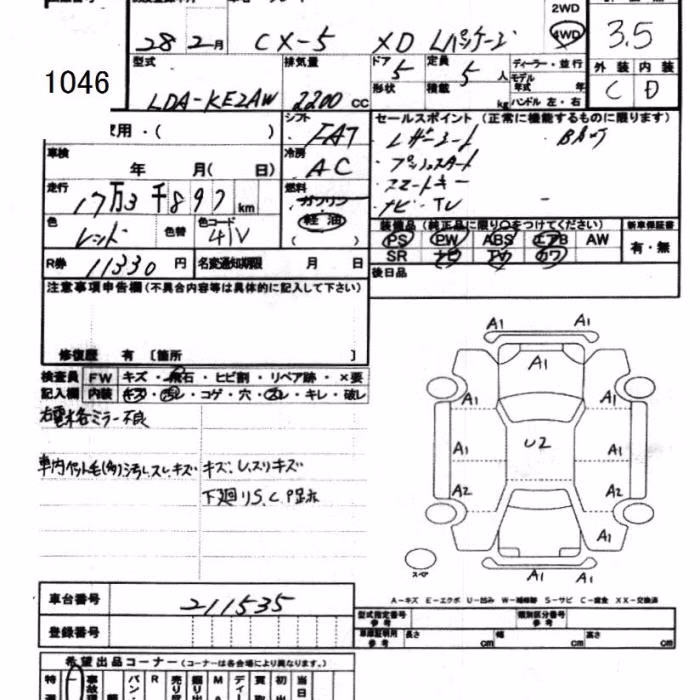 2WD
28 2月 CX-5 XD Lパッケージ 4WD 3.5
1046
型式 排気量 ドア 定員 ディーラー・並行 外装 内装
LDA-KE2AW 2200 CC 5 5 人 モデル年式 年 C D
形状 積載 kg ハンドル 左・右
シフト FAT セールスポイント (正常に機能するものに限ります)
用・( ) レザーシート
車検 年 月( 日) 冷房 AC プッシュスタート
走行 17万3千897 km 燃料 ガソリン スマートキー
軽油 ナビ・TV
色 レッド 色替 色コード 41V ( )
装備品 (純正品に限り○をつけてください) 新車保証書
PS PW ABS エアB AW 有・無
SR ナビ TV カワ
R券 11330 円 名変通知期限 月 日
後日品
注意事項申告欄(不具合内容等は具体的に記入して下さい)
修復歴 有 〔箇所 〕
検査員 FW キズ・飛石・ヒビ割・リペア跡・×要
記入欄 内装 キズ・汚レ・コゲ・穴・スレ・キレ・破レ
右電格ミラー不良
車内ペット毛(多)汚れスレキズ キズ、
下廻りS、C
A1 A1
A1
A1 A1
A1 U2 A1
A2 A2
A1
A1 A1
スペア
A-キズ E-エクボ U-凹み W-補修跡 S-サビ C-腐食 XX-交換済
車台番号 211535
登録番号
型式指定番号 参考 類別区分番号 参考
車庫証明用 参考 長さ cm 幅 cm 高さ cm
希望出品コーナー (コーナーは各会場により異なります。)